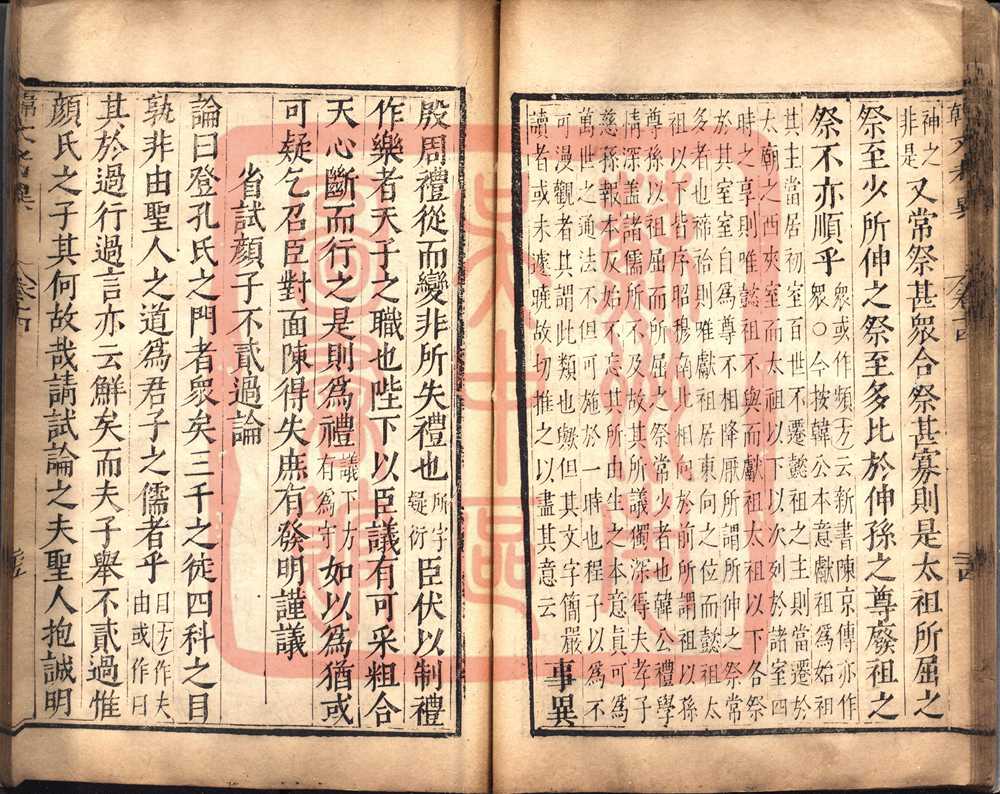 神之
非是
又常祭甚衆合祭甚寡則是太祖所屈之
祭至少所伸之祭至多比於伸孫之尊廢祖之
祭不亦順乎
衆或作頻方云新書陳京傳亦作
衆○今按韓公本意獻祖爲始祖
其主當居初室百世不遷懿祖之主則當遷於
太廟之西夾室而太祖以下以次列於諸室四
時之享則唯懿祖不與而獻祖太祖以下各祭
於其室室自爲尊不相降厭所謂所伸之祭常
多者也禘祫則唯獻祖居東向之位而懿祖太
祖以下皆序昭穆南北相向於前所謂祖以孫
尊孫以祖屈而所屈之祭常少者也韓公禮學
精深蓋諸儒所不及故其所議獨深得夫孝子
慈孫報本反始不忘其所由生之本意眞可爲
萬世之通法不但可施於一時也程子以爲不
可漫觀者其謂此類也歟但其文字簡嚴
讀者或未遽曉故切推之以盡其意云
事異
殷周禮從而變非所失禮也
所字
疑衍
臣伏以制禮
作樂者天子之職也陛下以臣議有可采粗合
天心斷而行之是則爲禮
議下方
有爲字
如以爲猶或
可疑乞召臣對面陳得失庶有發明謹議
省試顔子不貳過論
論曰登孔氏之門者衆矣三千之徒四科之目
孰非由聖人之道爲君子之儒者乎
目方作夫
由或作曰
其於過行過言亦云鮮矣而夫子舉不貳過惟
顔氏之子其何故哉請試論之夫聖人抱誠明